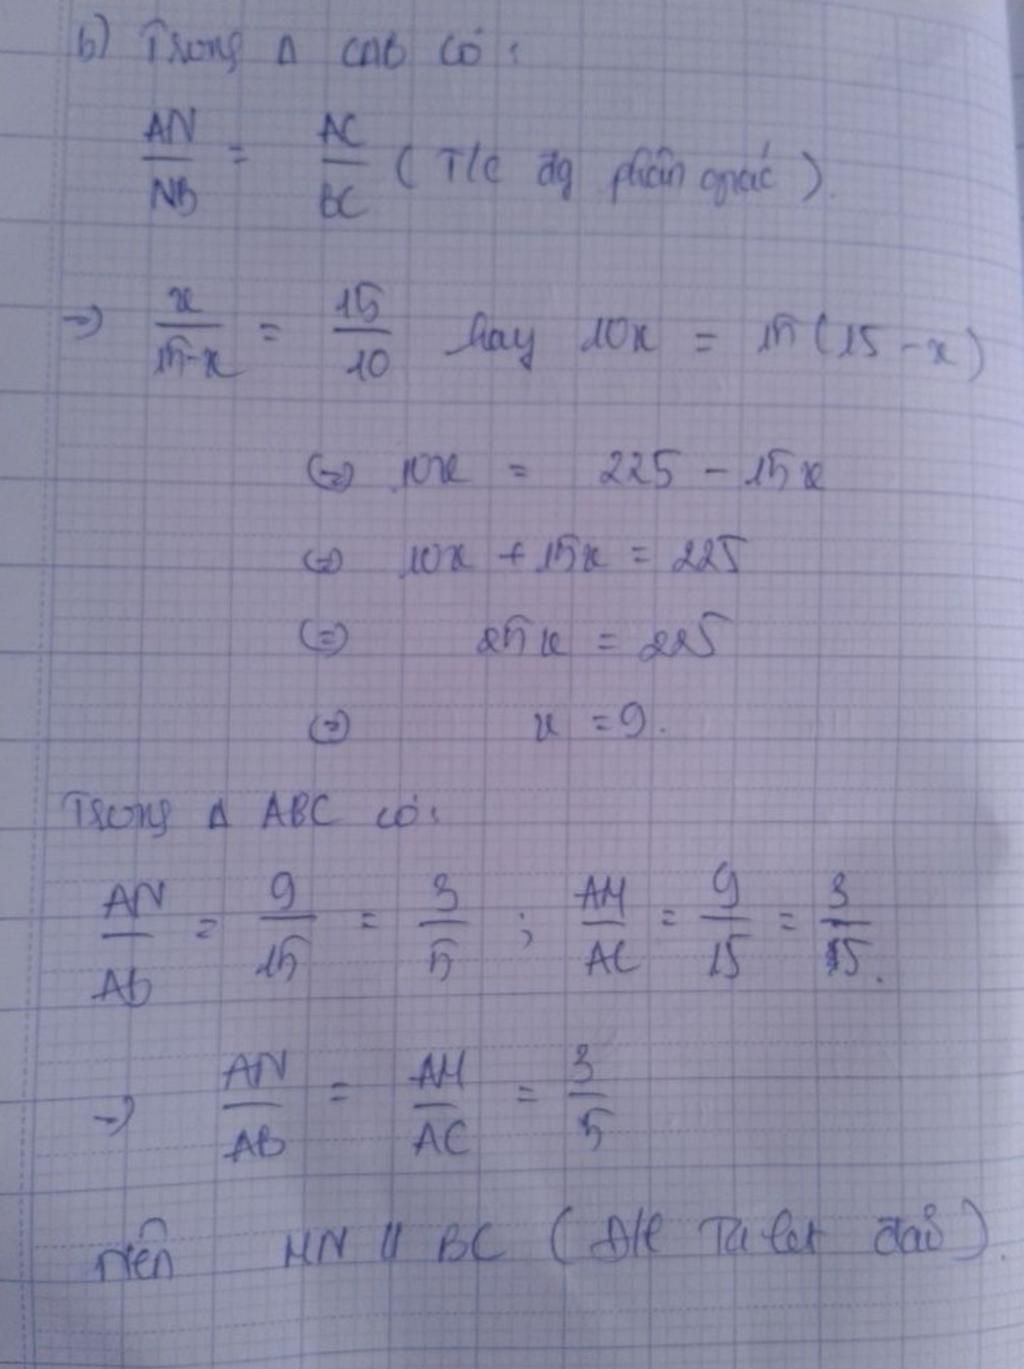 b) Trong Δ CAB có:
AN/NB = AC/BC (T/c đg phân giác).
=> x/15-x = 15/10 hay 10x = 15(15-x)
<=> 10x = 225 - 15x
<=> 10x + 15x = 225
<=> 25x = 225
<=> x = 9.
Trong Δ ABC có:
AN/AB = 9/15 = 3/5 ; AM/AC = 9/15 = 3/5.
=> AN/AB = AM/AC = 3/5
nên MN // BC (Đ/l Ta let đảo).